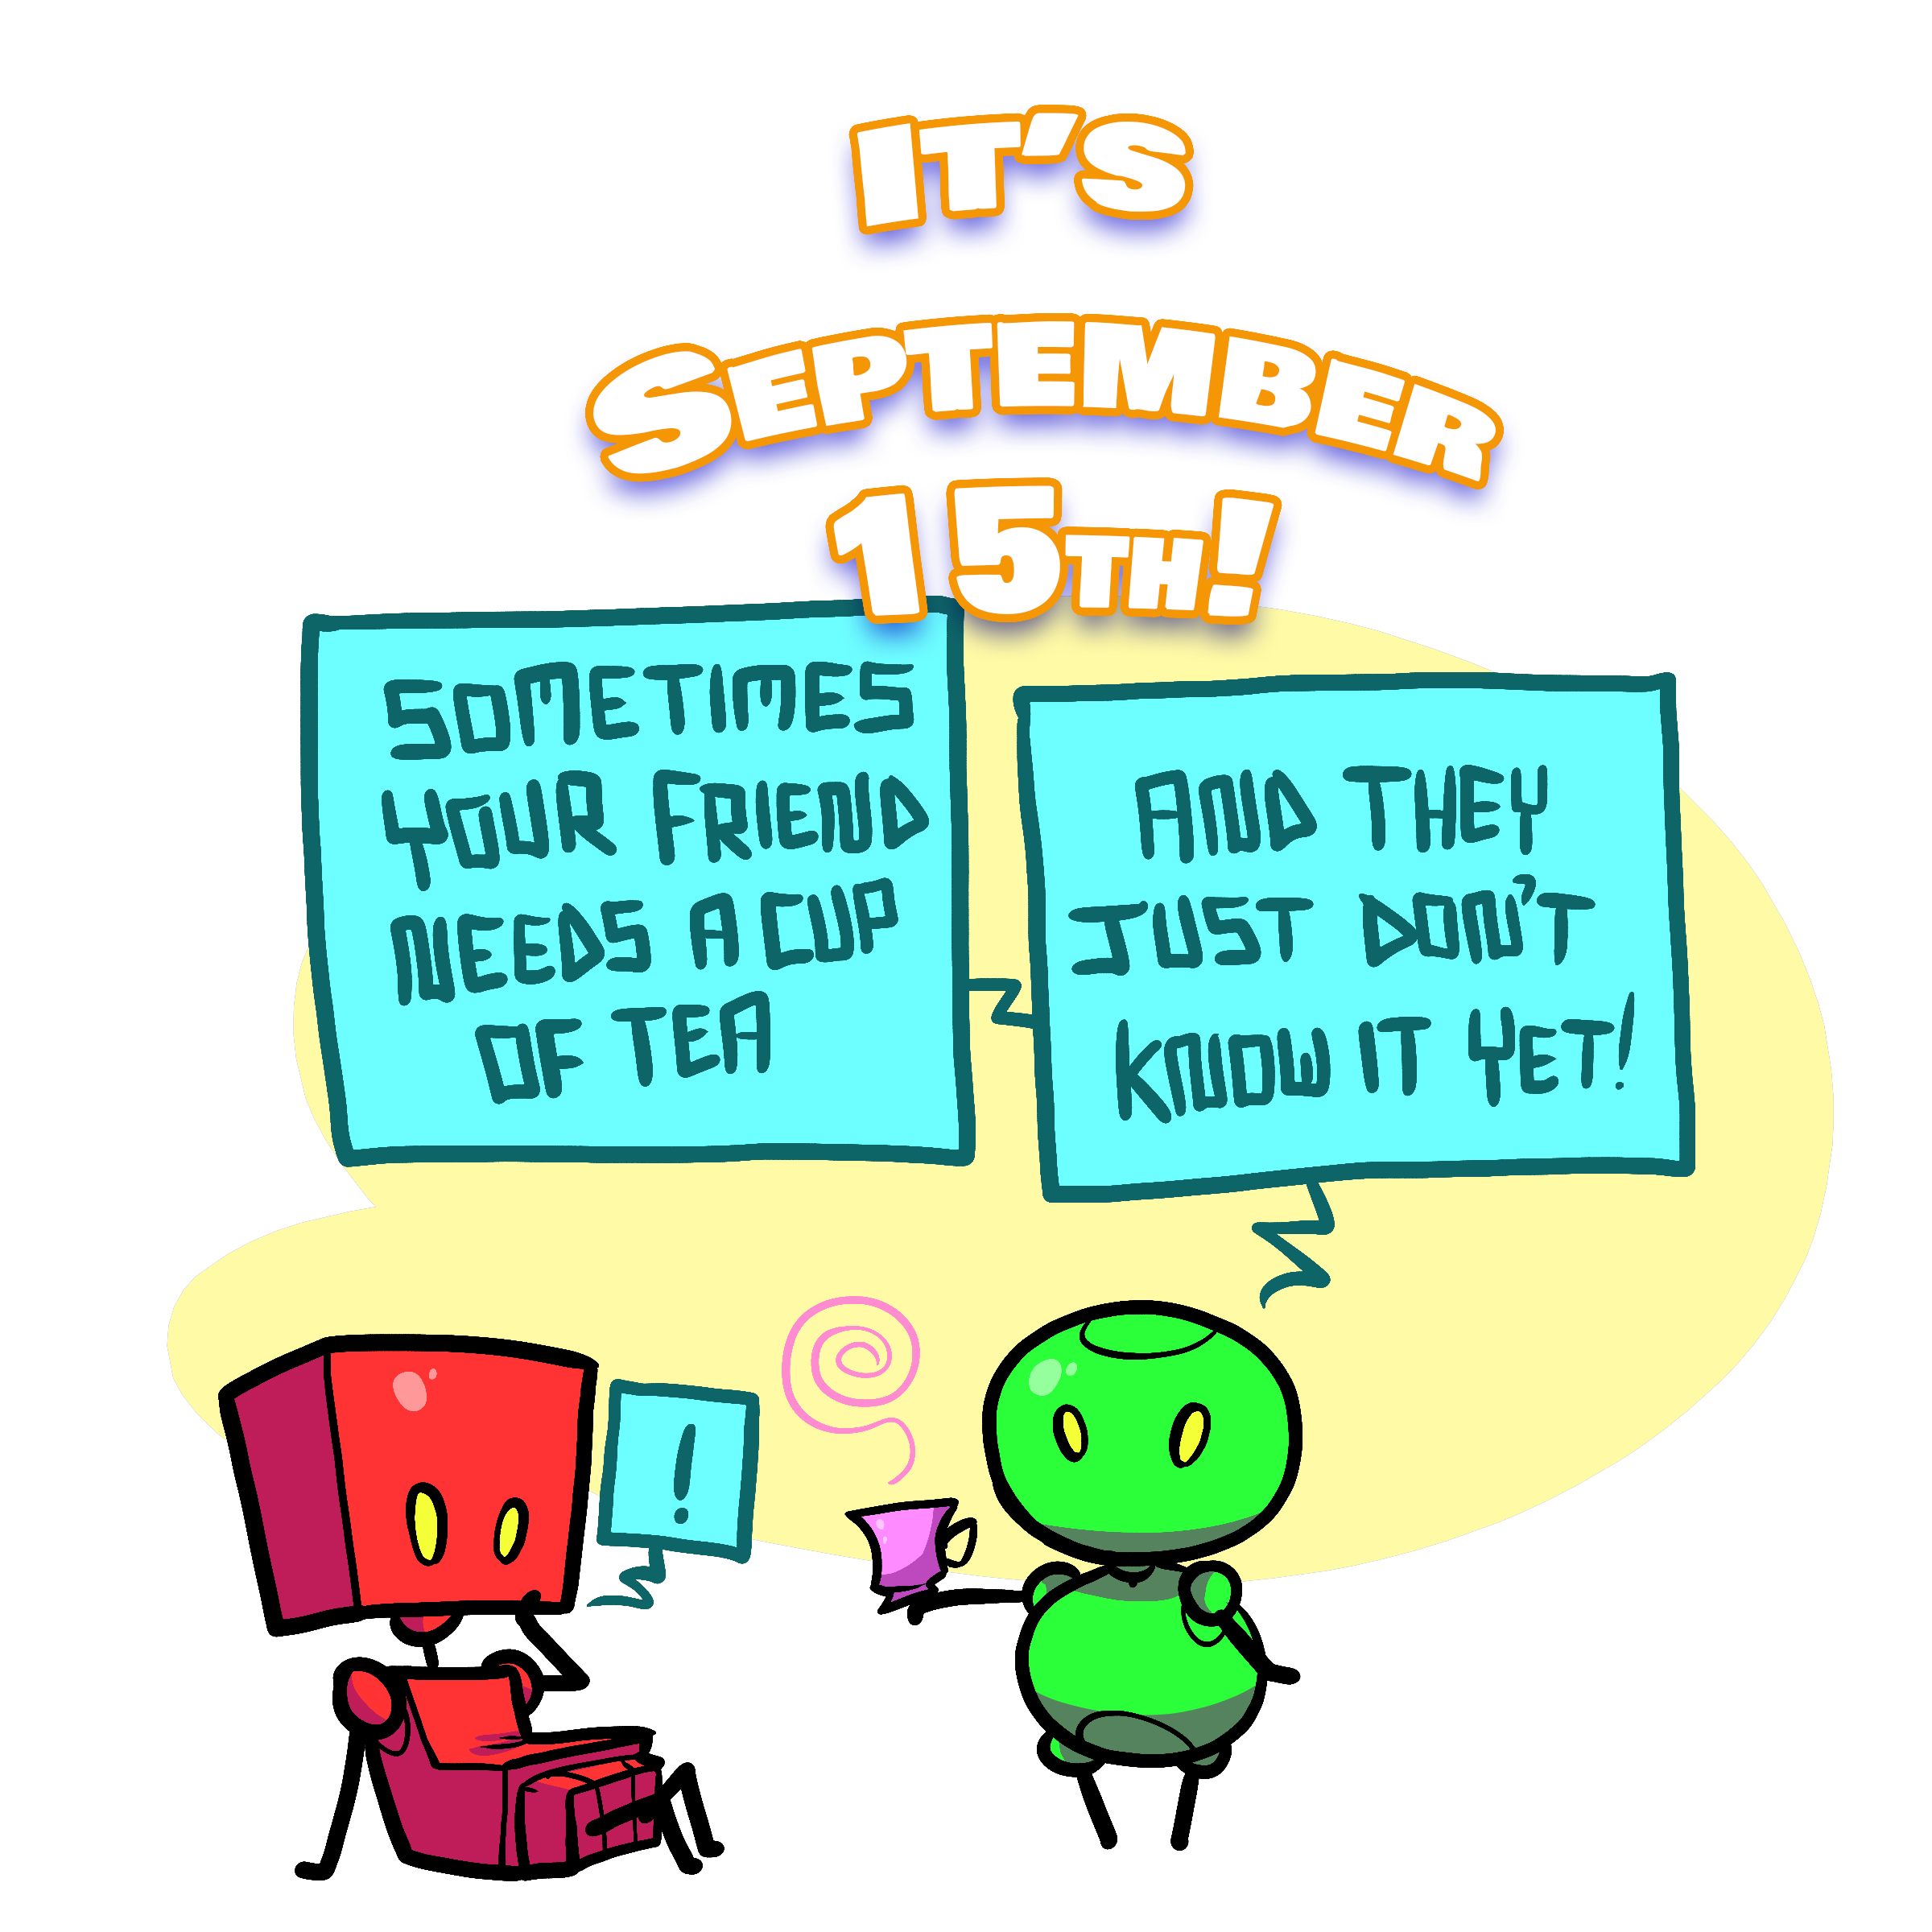 IT'S
SEPTEMBER
15TH!
SOMETIMES
YOUR FRIEND
NEEDS A CUP
OF TEA
AND THEY
JUST DON'T
KNOW IT YET!
!